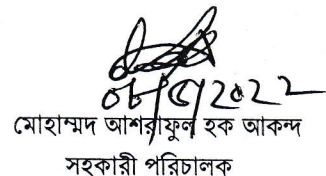 ০৮/৫/২০২২
মোহাম্মদ আশরাফুল হক আকন্দ
সহকারী পরিচালক